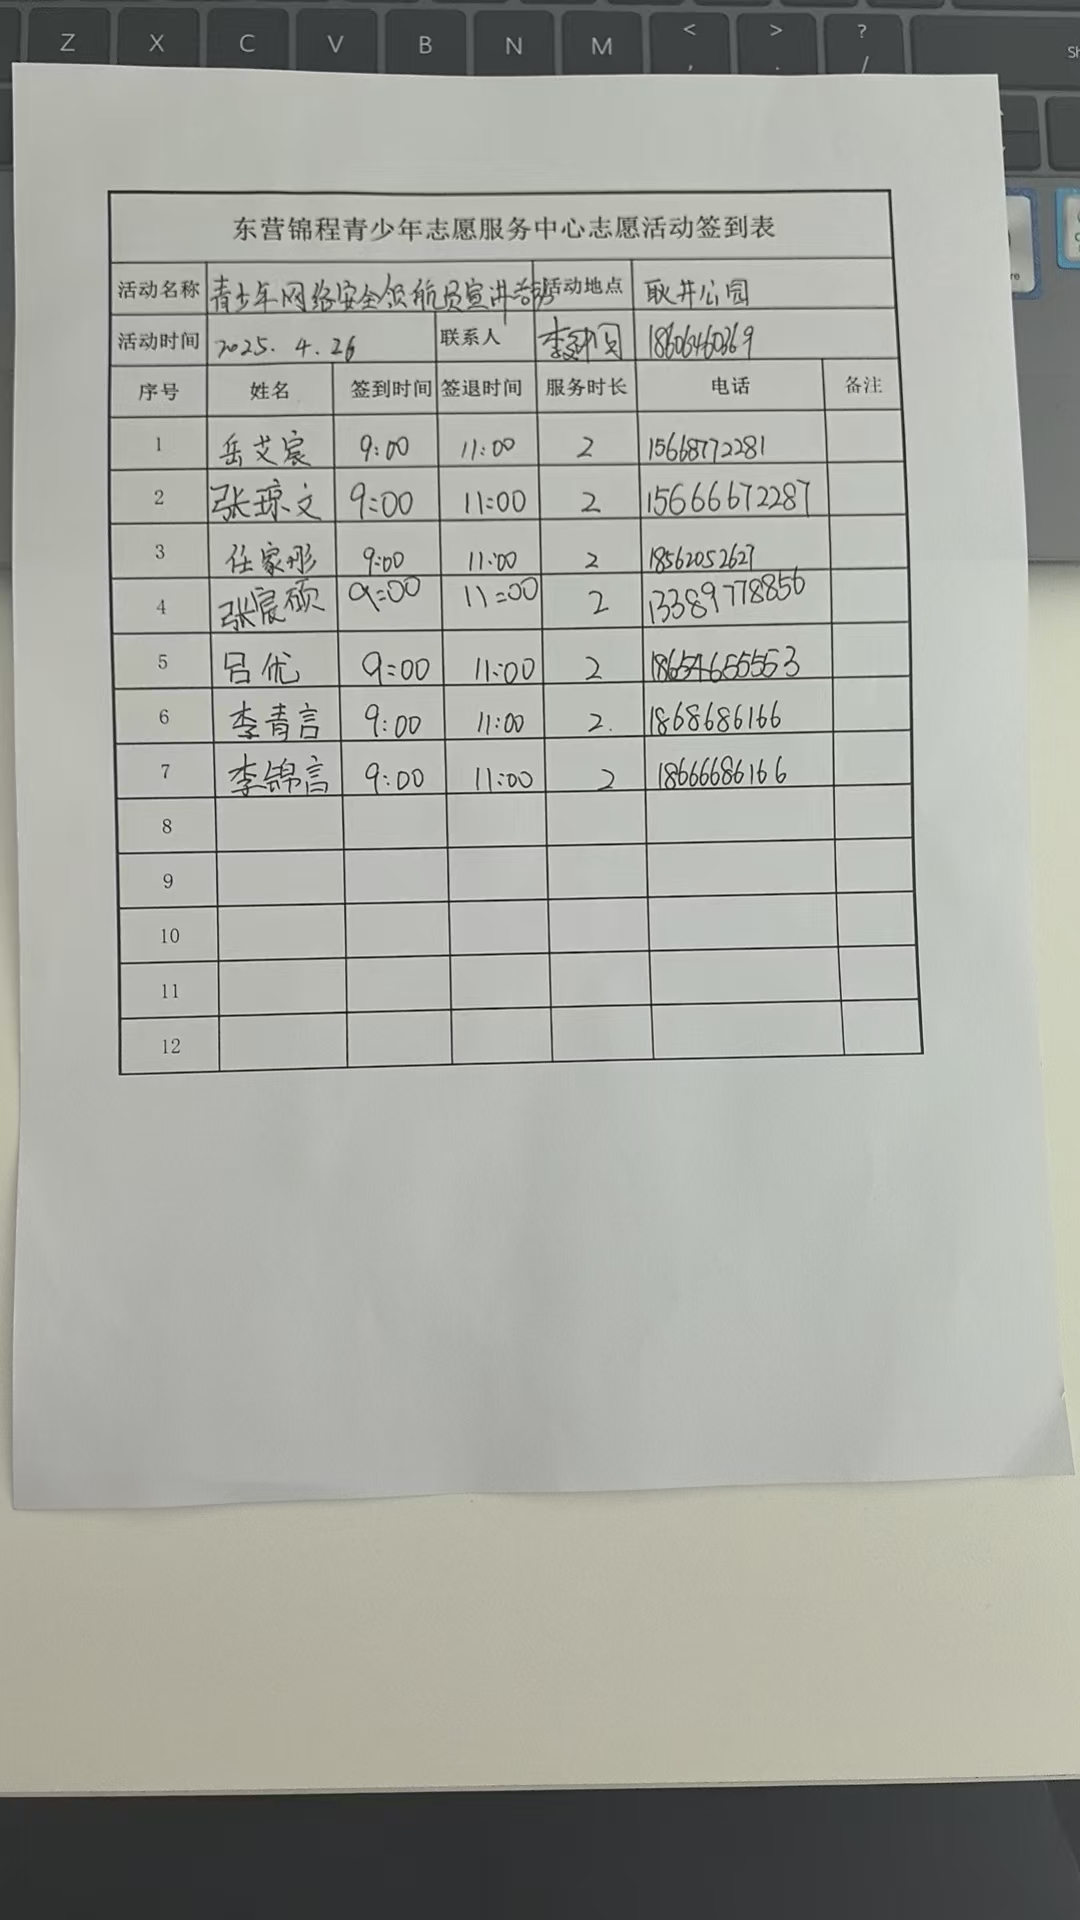 Z X C V B N M < , > . ? / Sh
东营锦程青少年志愿服务中心志愿活动签到表
活动名称 青少年网络安全领航员宣讲活动 活动地点 耿井公园
活动时间 2025.4.26 联系人 18606460369
序号 姓名 签到时间 签退时间 服务时长 电话 备注
1 岳艾宸 9:00 11:00 2 15668772281
2 张琼文 9:00 11:00 2 15666672287
3 任家彤 9:00 11:00 2 18562052627
4 张宸硕 9:00 11:00 2 13389778856
5 吕优 9:00 11:00 2 18654655553
6 李青言 9:00 11:00 2. 1868686166
7 李锦言 9:00 11:00 2 18666686166
8
9
10
11
12